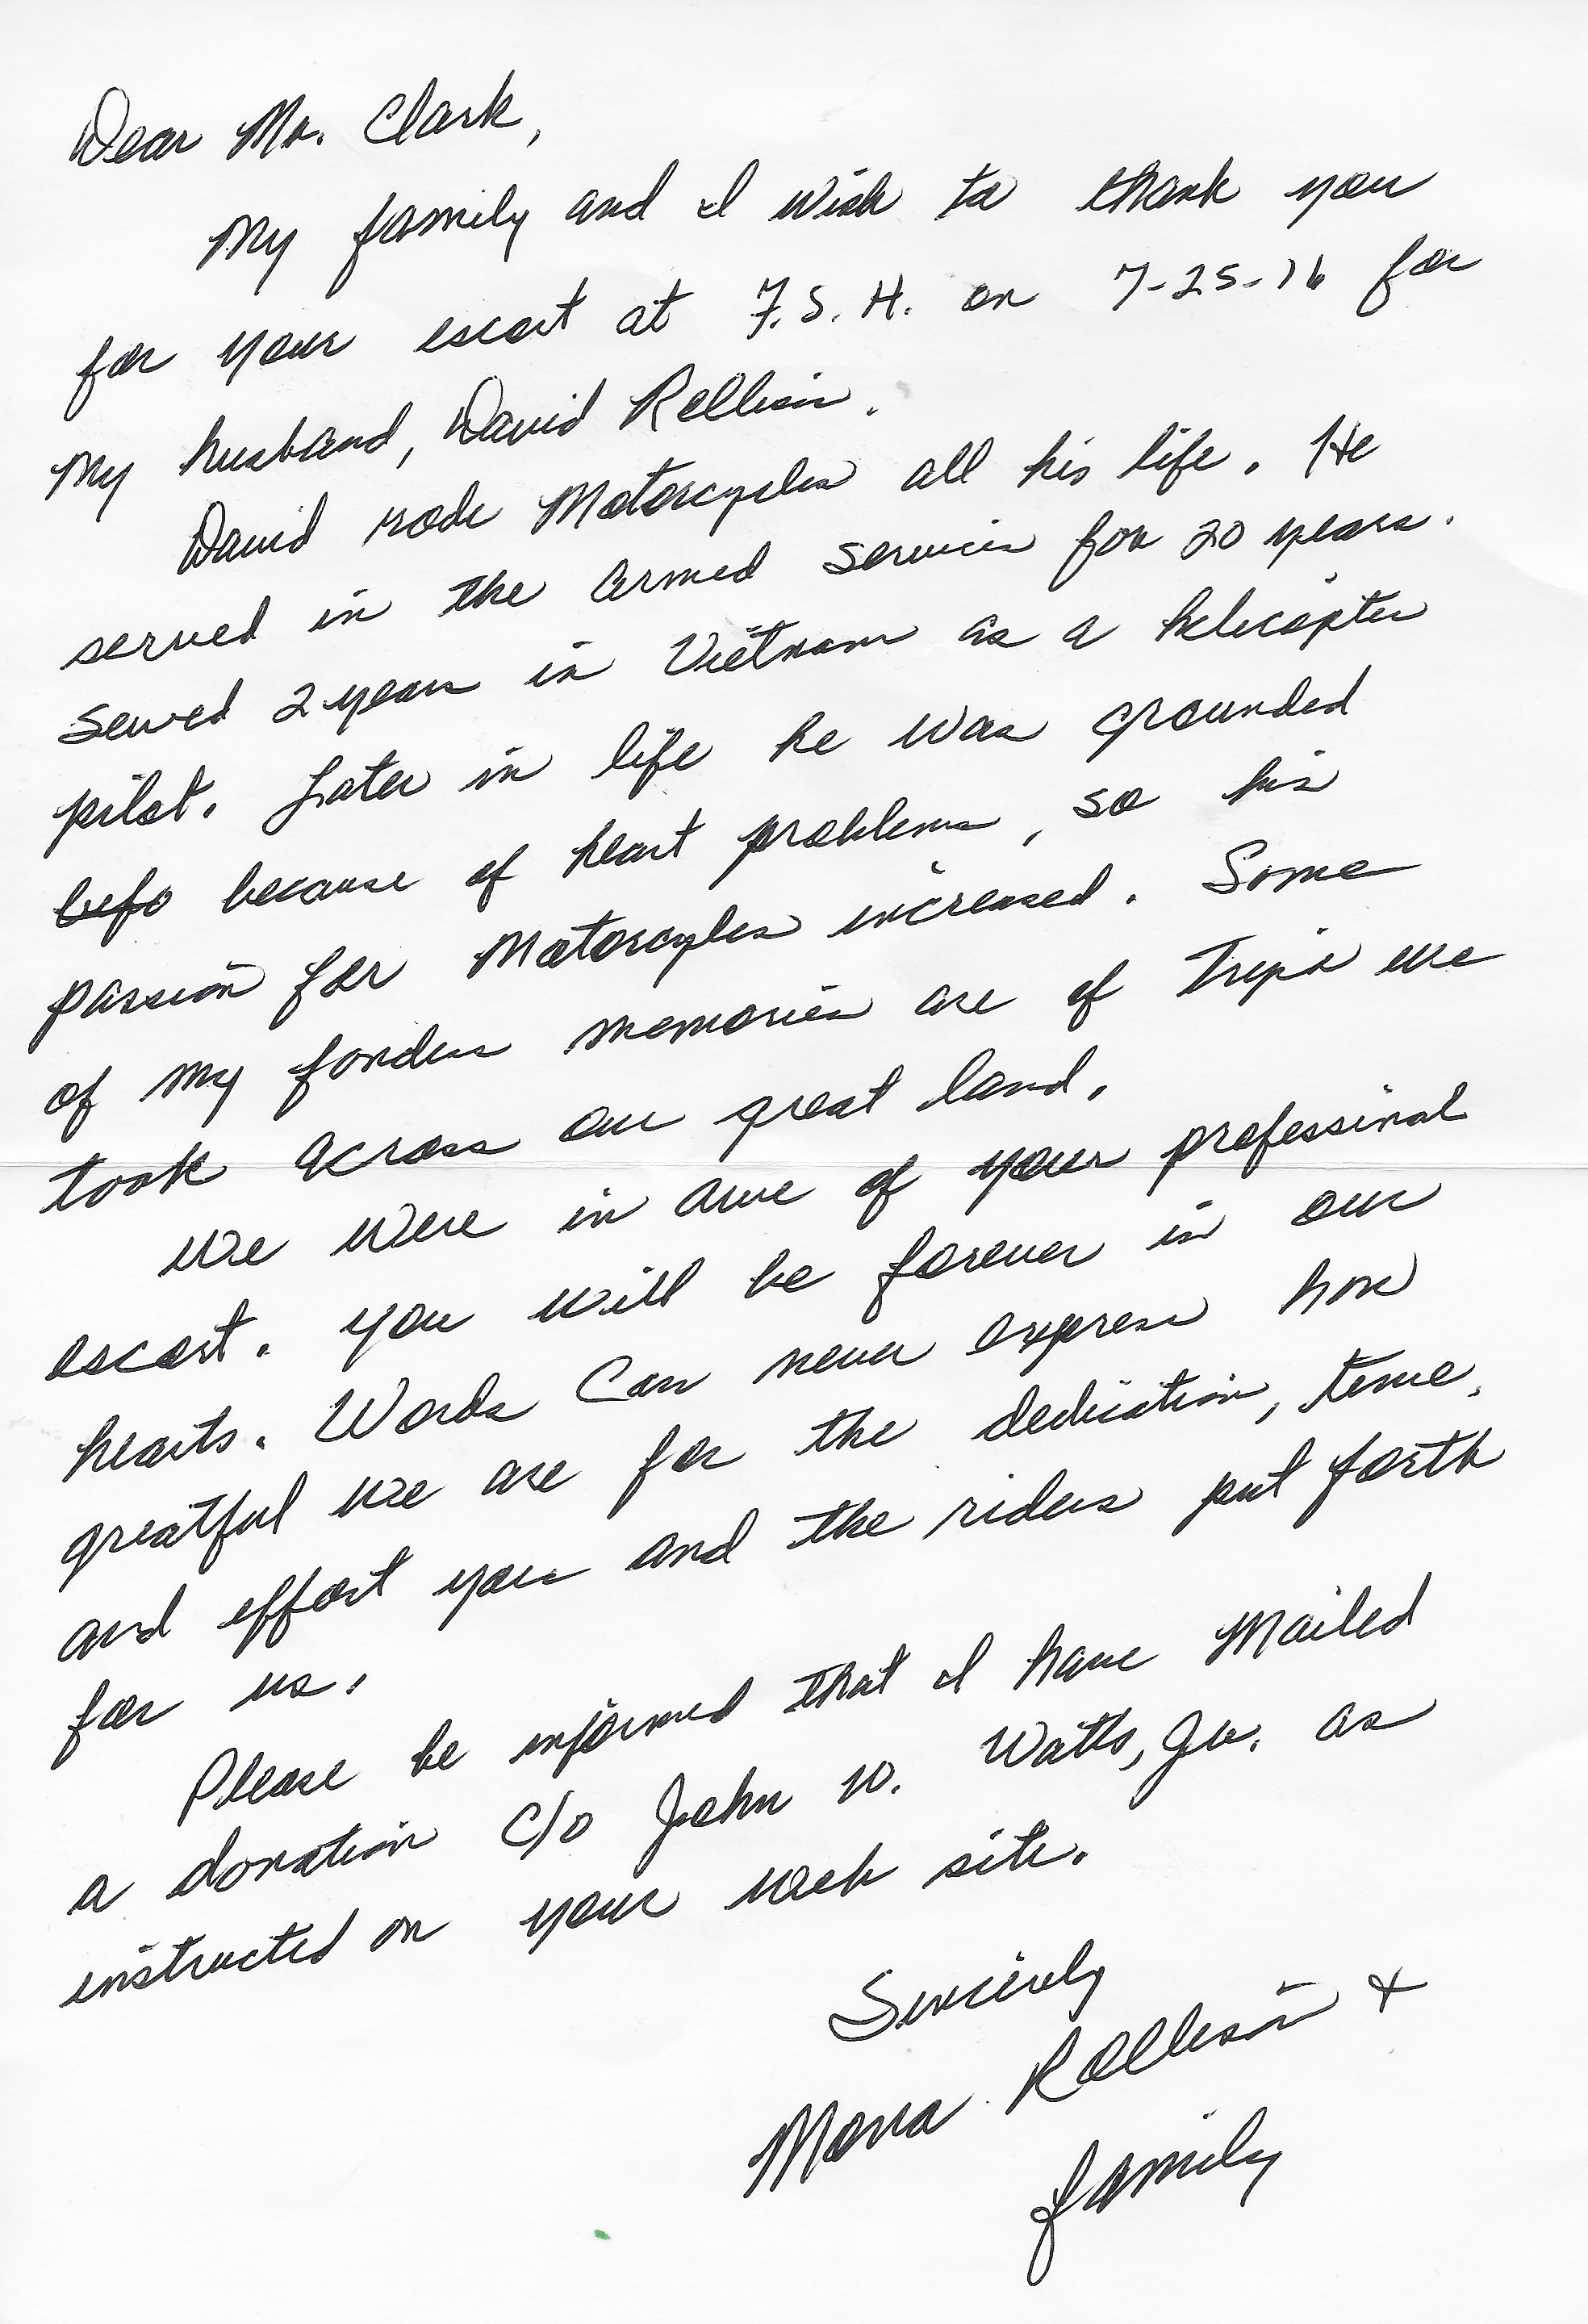 Dear Mr. Clark,
My family and I wish to thank you
for your escort at F.S.H. on 7-25-16 for
my husband, David Rollison.
David rode Motorcycles all his life. He
served in the armed services for 20 years.
Served 2 years in Vietnam as a helicopter
pilot. Later in life he was grounded
befo because of heart problems, so his
passion for Motorcycles increased. Some
of my fondess memories are of trips we
took across our great land.
We were in awe of your professional
escort. You will be forever in our
hearts. Words can never express how
greatful we are for the dedication, time,
and effort you and the riders put forth
for us.
Please be informed that I have mailed
a donation c/o John W. Watts, Jr. as
instructed on your web site.
Sincerely
Mona Rollison +
family